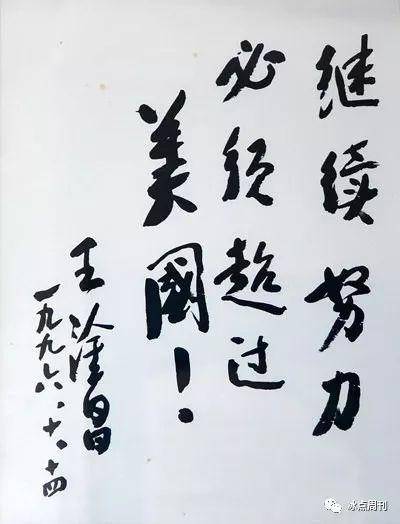 继续努力
必须超过
美國!
王淦昌
一九九六.十.十四
冰点周刊